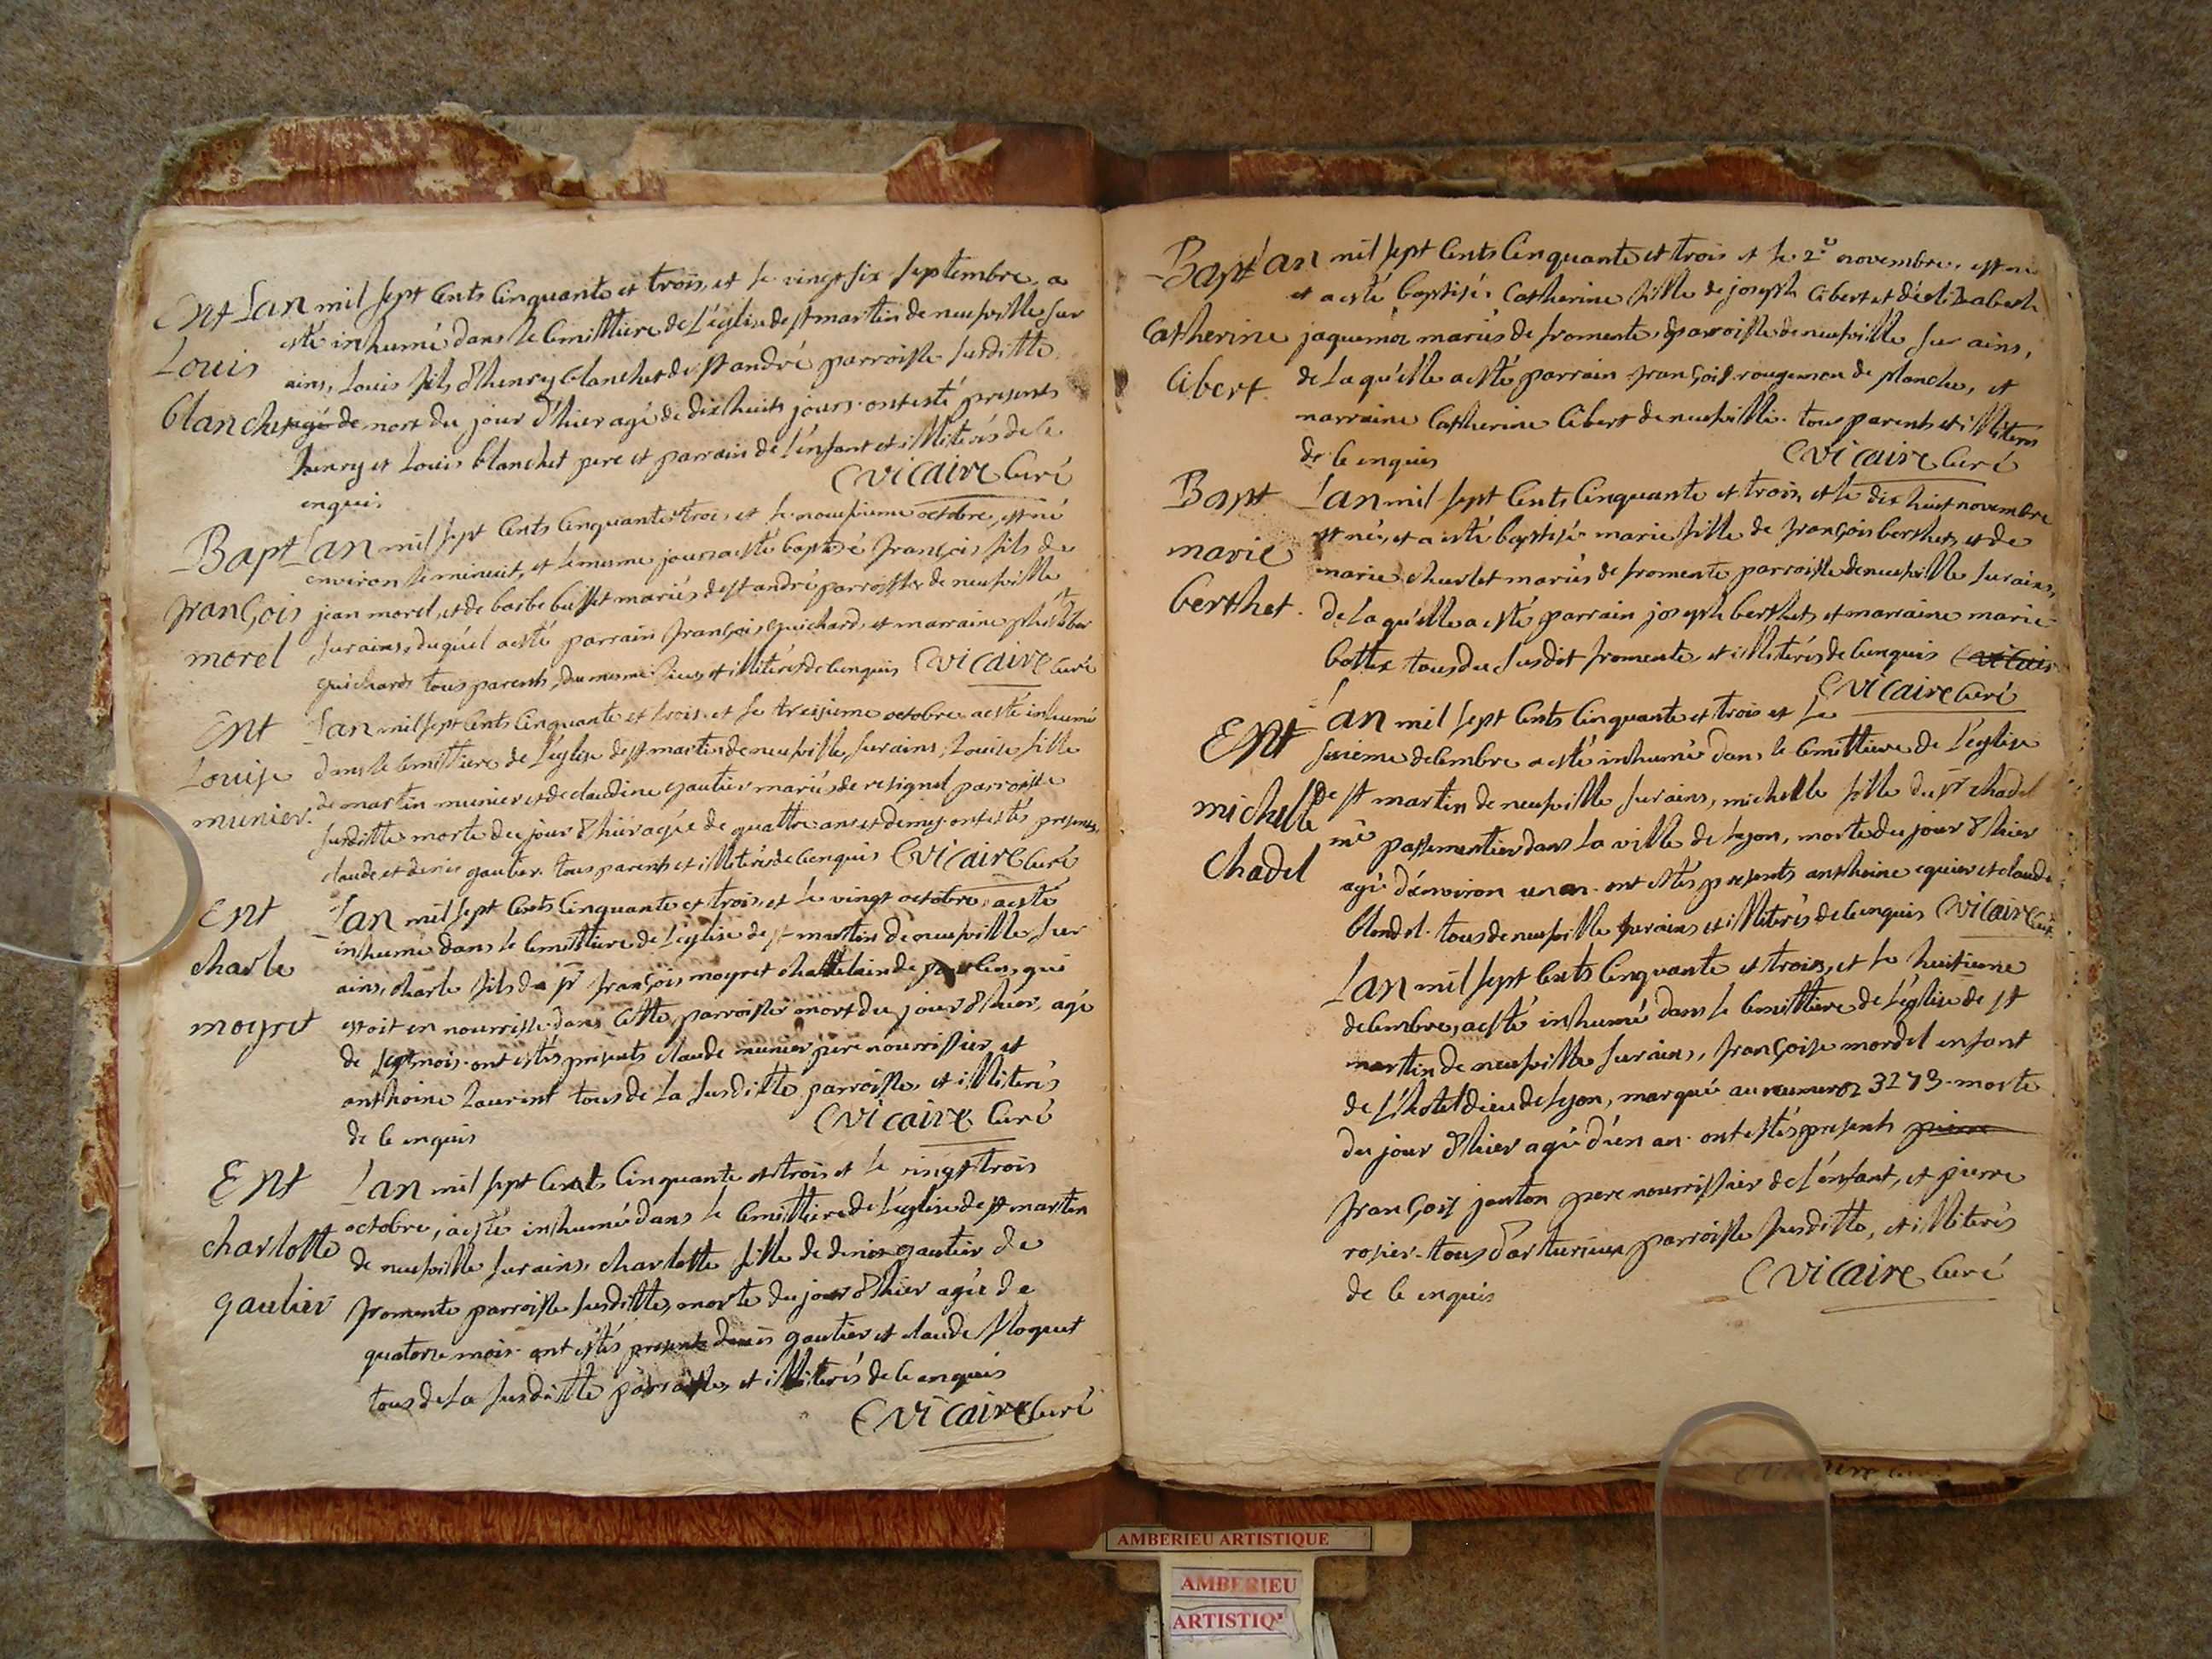 Ent Lan mil sept Cents Cinquante et trois, et le vingt six septembre, a
esté inhumé dans le Cemittiere de L'église de st martin de neufville sur
Louis ains, Louis fils d'henry blanchet de st andré parroisse susditte
blanchet agé de mort du jour d'hier agé de dix huits jours. ont esté presents
henry et Louis blanchet pere et parrain de l'enfant et illiterés de ce
enquis Cvicaire Curé
Bapt Lan mil sept Cents Cinquante et trois, et le neufvieme octobre, est né
environ le minuit, et le mesme jour a esté baptisé françois fils de
françois jean morel, et de barbe buffet mariés de st andré parroisse de neufville
morel sur ains, duquel a esté parrain françois guichard, et marraine
guichard tous parents, du mesme lieu, et illiterés de ce enquis Cvicaire Curé
Ent Lan mil sept Cents Cinquante et trois et le treisieme octobre a esté inhumé
Louise dans le Cemittiere de L'église de st martin de neufville sur ains, Louise fille
munier. de martin munier et de claudine gautier mariés de resignel parroisse
susditte morte du jour d'hier agée de quattre ans et demy. ont estés presents,
claude et denis gautier. tous parents et illiterés de ce enquis Cvicaire Curé
Ent Lan mil sept Cents Cinquante et trois, et le vingt octobre, a esté
inhumé dans le Cemittiere de L'église de st martin de neufville sur
charle ains, charle fils de sr françois moyret chattelain de qui
moyret estoit en nourrisse dans Cette parroisse mort du jour d'hier, agé
de sept mois. ont estés presents claude munier pere nourrissier et
anthoine Laurent tous de la susditte parroisse, et illiterés
de ce enquis Cvicaire Curé
Ent Lan mil sept Cents Cinquante et trois et le vingt trois
octobre, a esté inhumé dans le Cemittiere de L'église de st martin
charlotte de neufville sur ains, charlotte fille de denis gautier de
gautier fromente parroisse susditte, morte du jour d'hier agée de
quatorze mois. ont estés presents denis gautier et claude floquet
tous de la susditte parroisse, et illiterés de ce enquis
Cvicaire Curé
Bapt Lan mil sept Cents Cinquante et trois et le 2e novembre, est né
et a esté baptisé, Catherine fille de joseph Cibert et d'élizabeth
Catherine jaquemoz mariés de fromente, parroisse de neufville sur ains,
Cibert. de laquelle a esté parrain françois rougemon de planche, et
marraine Catherine Cibert de neufville. tous parents et illiterés
de ce enquis Cvicaire Curé
Bapt Lan mil sept Cents Cinquante et trois, et le dix huit novembre
est né, et a esté baptisé marie fille de françois berthet, et de
marie marie charlet mariés de fromente parroisse de neufville sur ains,
berthet. de laquelle a esté parrain joseph berthet, et marraine marie
bottex tous du susdit fromente, et illiterés de ce enquis Cvicaire
Cvicaire Curé
Ent Lan mil sept Cents Cinquante et trois et le
decembre a esté inhumé dans le Cemittiere de L'église
michelle de st martin de neufville sur ains, michelle fille du sr chadel
me passementier dans la ville de Lyon, morte du jour d'hier
chadel agé d'environ un an. ont estés presents anthoine equier et claude
blondel. tous de neufville sur ains et illiterés de ce enquis Cvicaire Curé
Lan mil sept Cents Cinquante et trois, et le huitieme
decembre, a esté inhumé dans le Cemittiere de L'église de st
martin de neufville sur ains, françoise mordel enfant
de L'hotel dieu de Lyon, marqué au numeroz 3273. morte
du jour d'hier agé d'un an. ont estés presents pierre
françois janton pere nourrissier de l'enfant, et pierre
rosier. tous d'arturieux parroisse susditte, et illiterés
de ce enquis Cvicaire Curé
AMBERIEU ARTISTIQUE
AMBERIEU
ARTISTIQ